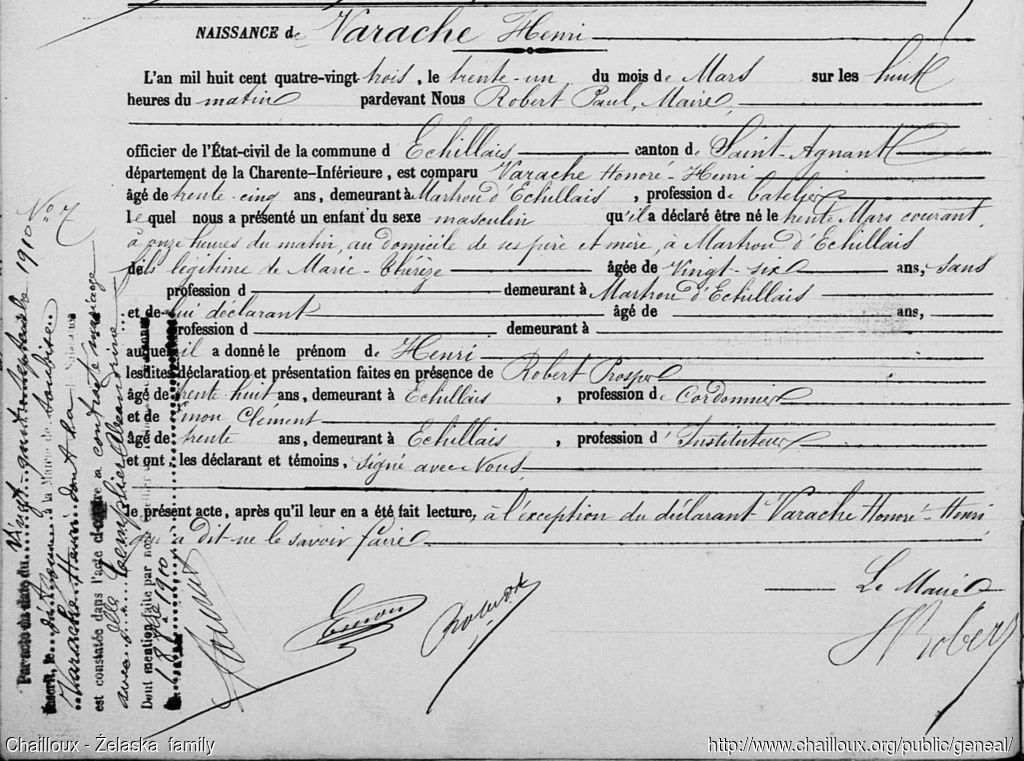 NAISSANCE de Varache Henri
L'an mil huit cent quatre-vingt trois, le trente-un du mois de Mars sur les huit
heures du matin pardevant Nous Robert Paul, Maire
officier de l'État-civil de la commune d'Echillais canton de Saint-Agnant
département de la Charente-Inférieure, est comparu Varache Honoré-Henri
âgé de trente-cinq ans, demeurant à Martrou d'Echillais, profession de
lequel nous a présenté un enfant du sexe masculin qu'il a déclaré être né le trente Mars courant
à onze heures du matin, au domicile de ses père et mère, à Martrou d'Echillais
fils légitime de Marie-Thérèze âgée de vingt-six ans, sans
profession d demeurant à Martrou d'Echillais
et de lui déclarant âgé de ans,
profession d demeurant à
auquel il a donné le prénom de Henri
lesdites déclaration et présentation faites en présence de Robert Prosper
âgé de trente huit ans, demeurant à Echillais, profession de Cordonnier
et de Clément
âgé de trente ans, demeurant à Echillais, profession d'Instituteur
et ont, les déclarant et témoins, signé avec Nous
le présent acte, après qu'il leur en a été fait lecture, à l'exception du déclarant Varache Honoré-Henri
qui a dit ne le savoir faire
Le Maire
Robert
PRobert
No. 7
Par acte en date du Vingt quatre 1910
inscrit, le à la Mairie de Soubise
Varache Henri dont la Naissance
est constatée dans l'acte a contracté mariage
avec Templier Alexandrine
Dont mention faite par nous
1910
Chailloux - Żelaska family
http://www.chailloux.org/public/geneal/